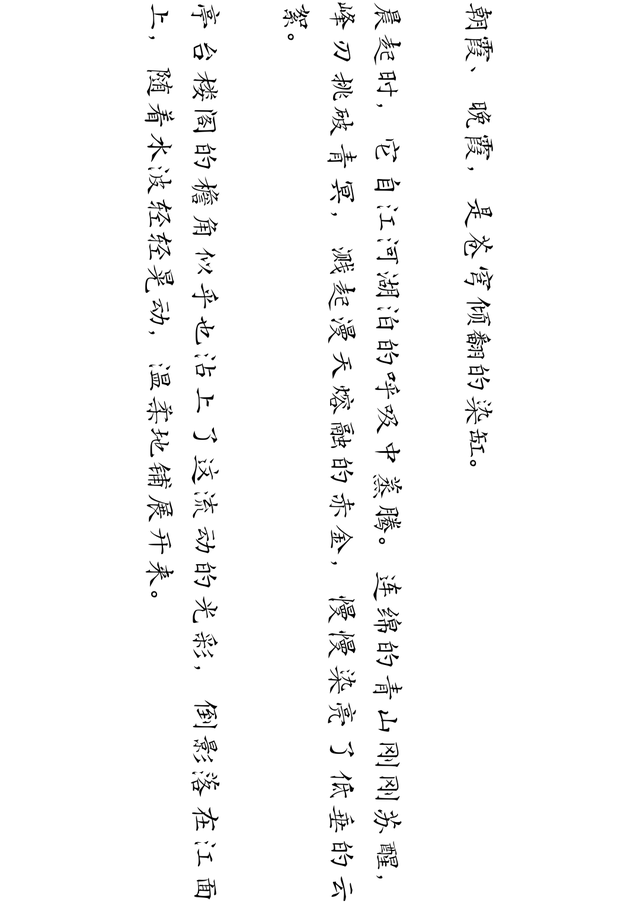 朝霞、晚霞，是苍穹倾翻的染缸。
晨起时，它自江河湖泊的呼吸中蒸腾。连绵的青山刚刚苏醒，
峰刃挑破青冥，溅起漫天熔融的赤金，慢慢染亮了低垂的云
絮。
亭台楼阁的檐角似乎也沾上了这流动的光彩，倒影落在江面
上，随着水波轻轻晃动，温柔地铺展开来。